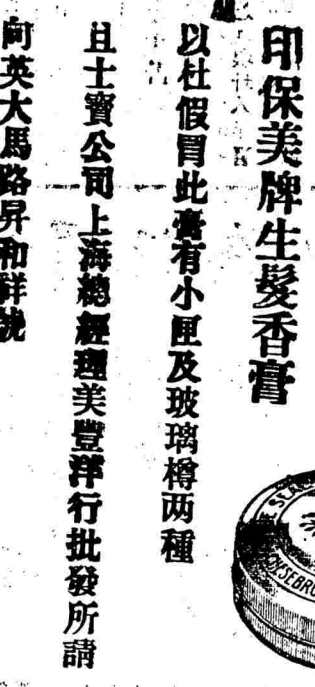 印保美牌生髮香膏
以杜假冒此膏有小匣及玻璃樽两種
且士寶公司上海總經理美豐洋行批發所請
向英大馬路昇和祥號